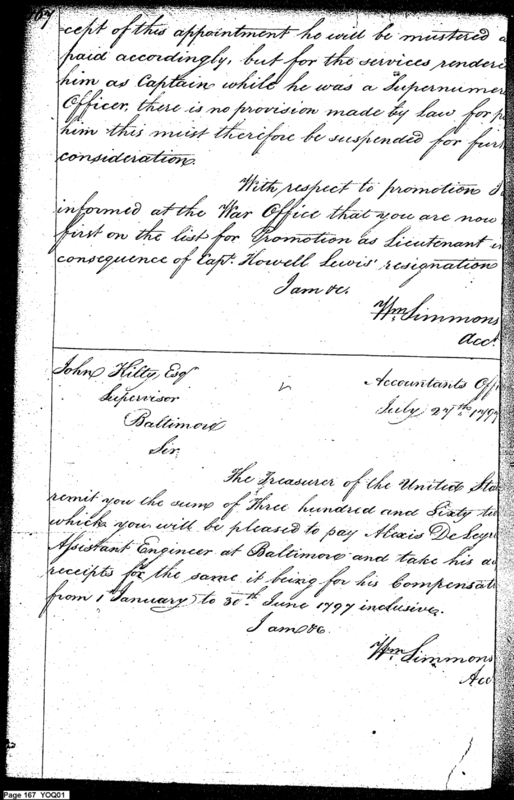 167
cept of this appointment he will be mustered a
paid accordingly, but for the services rendere
him as Captain while he was a Supernumer
Officer, there is no provision made by Law for p
him this must therefore be suspended for fur
consideration.
With respect to promotion I
informed at the War Office that you are now
first on the list for Promotion as Lieutenant in
consequence of Capt. Howell Lewis' resignation
I am &c.
Wm Simmons
Acct
John Kilty, Esqr
Supervisor
Baltimore
Sir
Accountants Off
July 27th 1797
The Treasurer of the United Sta
remit you the sum of Three hundred and Sixty tw
which you will be pleased to pay Alexis De Leyr
Assistant Engineer at Baltimore and take his
receipts for the same it being for his Compensat
from 1 January to 30th June 1797 inclusive.
I am &c
Wm Simmons
Acct
Page 167 YOQ01